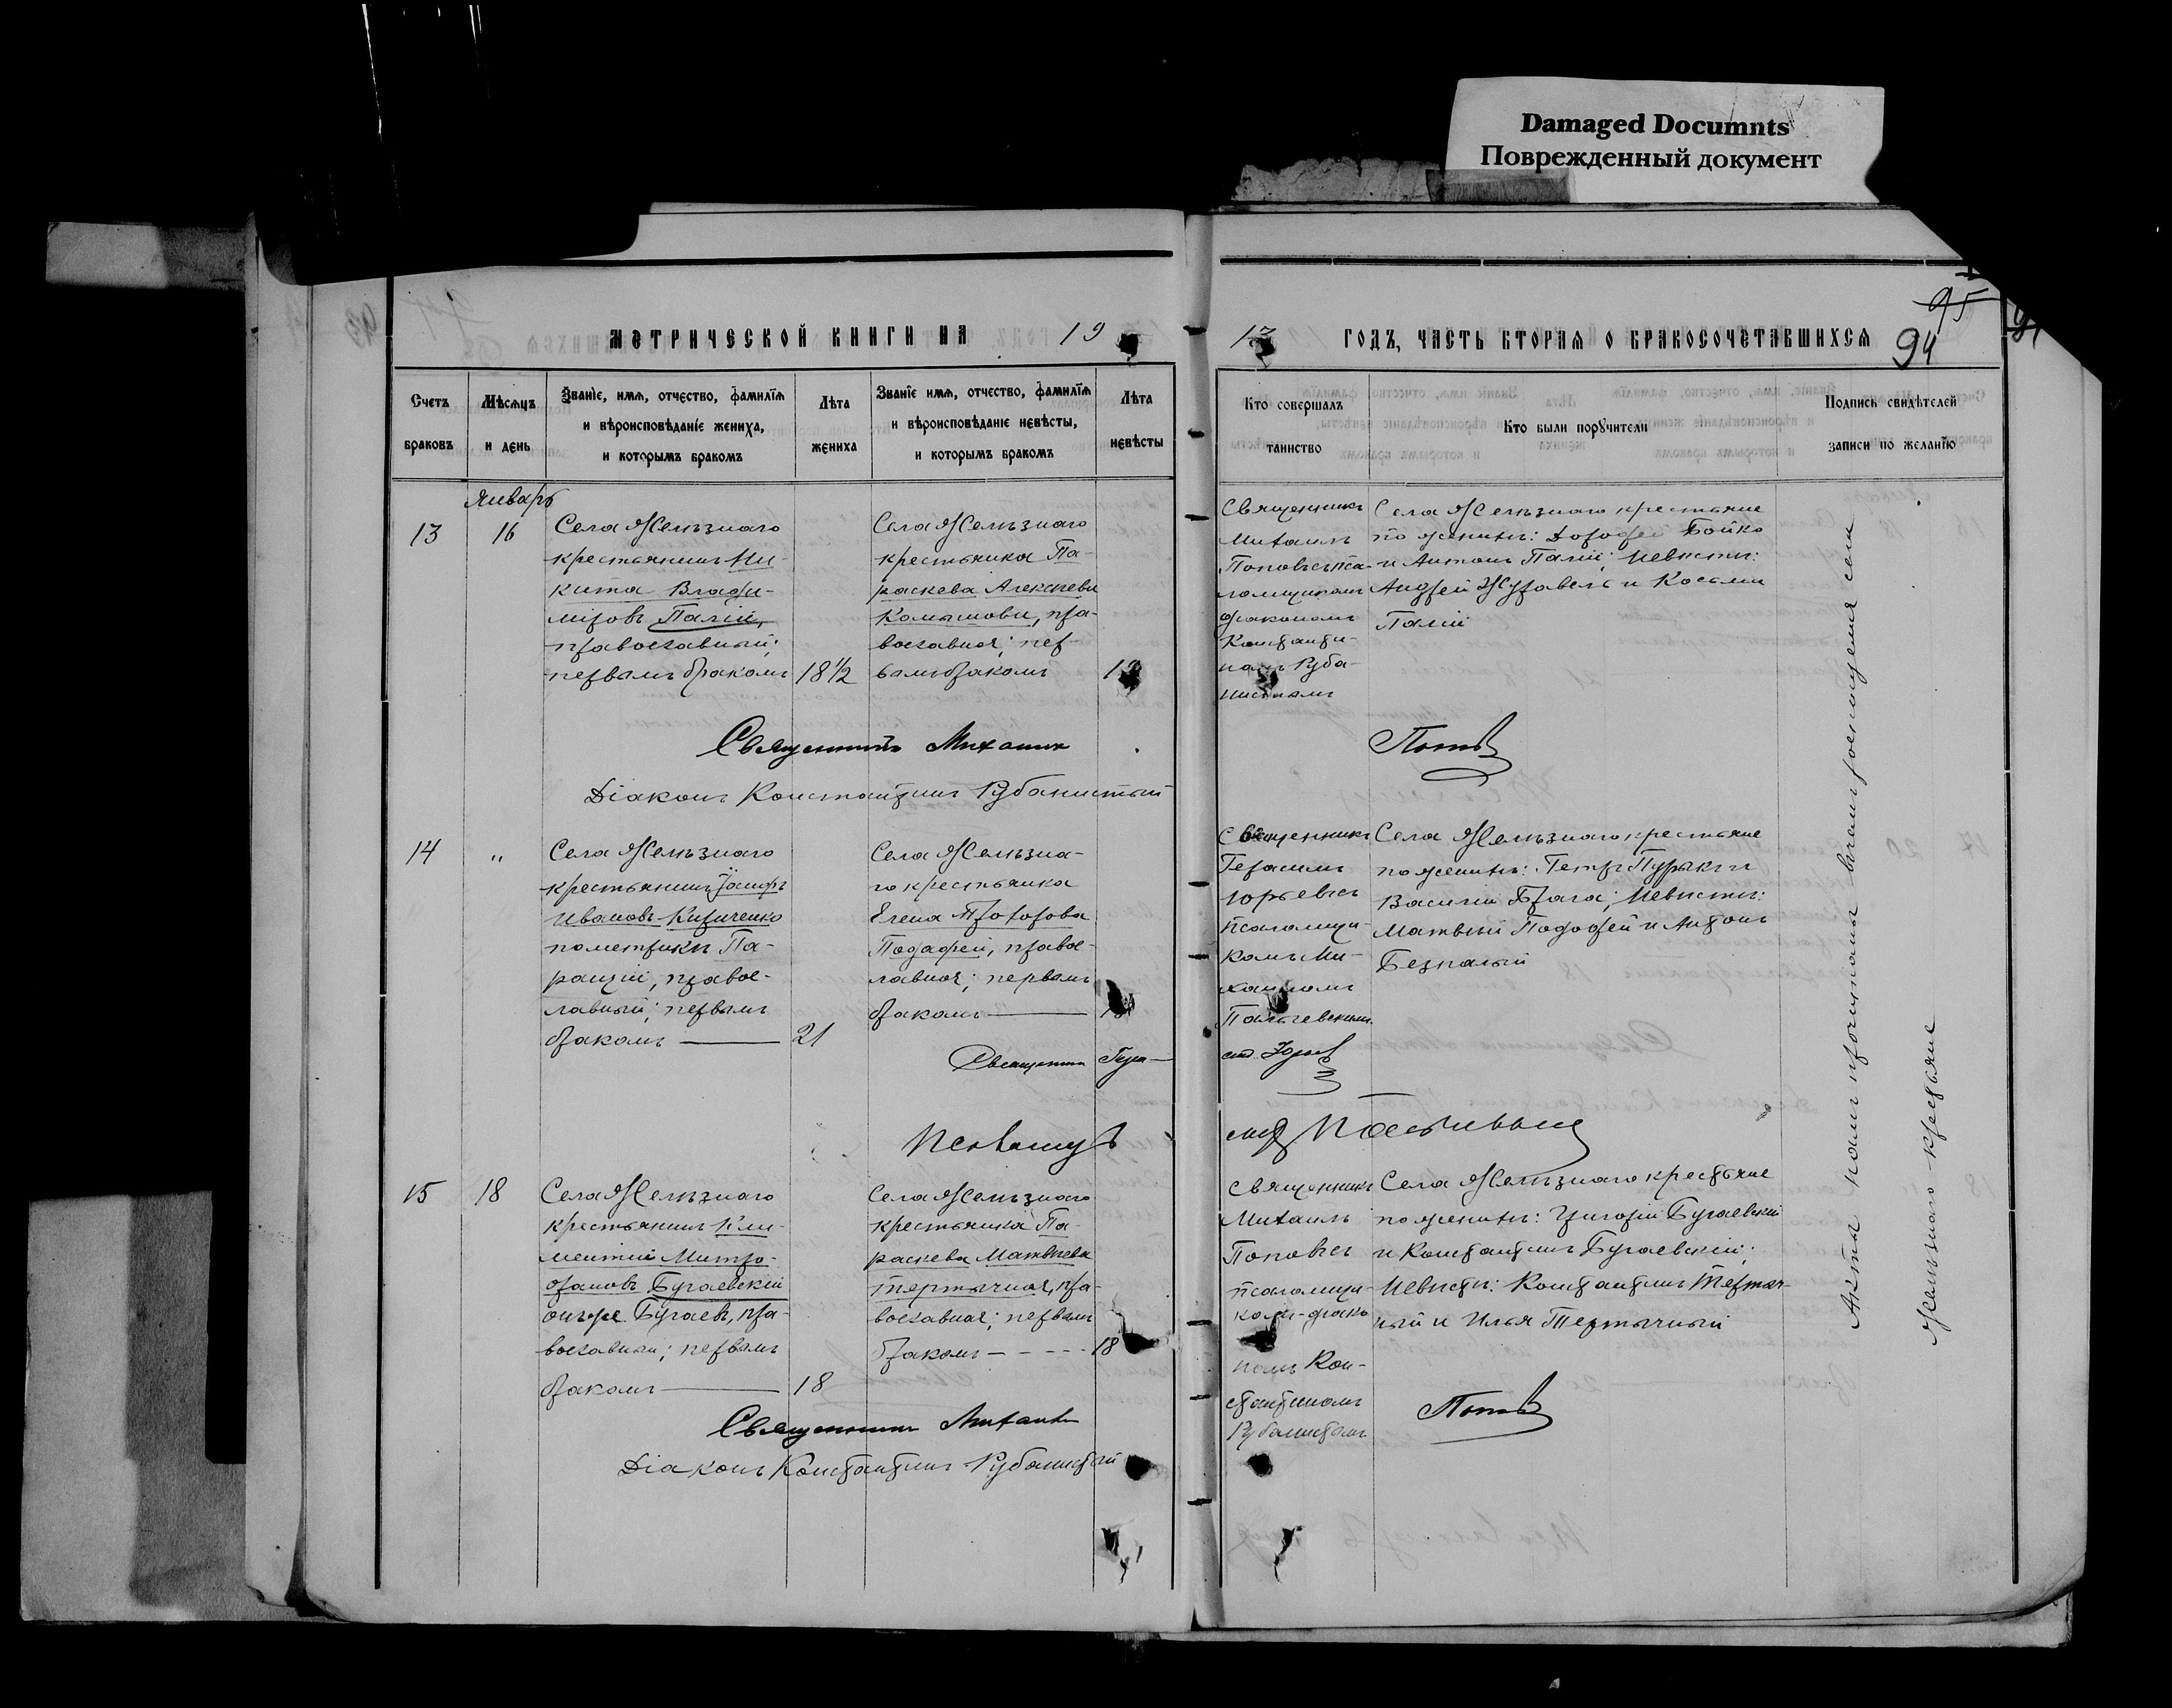 Damaged Documnts
Поврежденный документ
95
94
МЕТРИЧЕСКОЙ КНИГИ НА 19
17 ГОДЪ, ЧАСТЬ ВТОРАЯ О БРАКОСОЧЕТАВШИХСЯ
Счетъ
браковъ
Мѣсяцъ
и день
Званіе, имя, отчество, фамилія
и вѣроисповѣданіе жениха,
и которымъ бракомъ
Лѣта
жениха
Званіе имя, отчество, фамилія
и вѣроисповѣданіе невѣсты,
и которымъ бракомъ
Лѣта
невѣсты
Кто совершалъ
таинство
Кто были поручители
Подпись свидѣтелей
записи по желанію
Январь
13
16
Села Желѣзнаго
крестьянинъ Ни-
кита Влади-
міровъ Палій,
православный;
первымъ бракомъ
18 1/2
Села Желѣзнаго
крестьянка Па-
раскева Алексѣева
правос-
лавная; пер-
вымъ бракомъ
Священникъ
Михаилъ
Поповъ съ пса-
ломщикомъ
діакономъ
Константи-
номъ Руба-
нистымъ
Села Желѣзнаго крестьяне
по женихѣ: Дорофей Бойко
и Антонъ Палій; невѣсты:
Андрей Журавель и Косьма
Палій
Священникъ Михаилъ
Поповъ
Діаконъ Константинъ Рубанистый
14
"
Села Желѣзнаго
крестьянинъ Іосифъ
Ивановъ Кириченко
по метрикѣ Па-
правос-
лавный; первымъ
бракомъ —
21
Села Желѣзна-
го крестьянка
Елена
правос-
лавная; первымъ
бракомъ —
Священникъ
Герасимъ
Юрьевъ съ
псаломщи-
комъ Ми-
хаиломъ
Села Желѣзнаго крестьяне
по женихѣ: Петръ и
Василій Брага; невѣсты:
Матвѣй и Антонъ
Безпалый
Священникъ Гера-
симъ Юрьевъ
Псаломщ
15
18
Села Желѣзнаго
крестьянинъ Кли-
ментій Митро-
фановъ Бугаевскій
онъ же Бугаевъ, пра-
вославный; первымъ
бракомъ —
18
Села Желѣзнаго
крестьянка Па-
раскева Матвѣева
Тертычная, пра-
вославная; первымъ
бракомъ - - - -
18
Священникъ
Михаилъ
Поповъ съ
псаломщи-
комъ-діако-
номъ Кон-
стантиномъ
Рубанистымъ
Села Желѣзнаго крестьяне
по женихѣ: Григорій Бугаевскій
и Константинъ Бугаевскій;
невѣсты: Константинъ Тертыч-
ный и Илья Тертычный
Священникъ Михаилъ
Поповъ
Діаконъ Константинъ Рубанистый
Акты нами прочитаны села
Желѣзнаго крестьяне